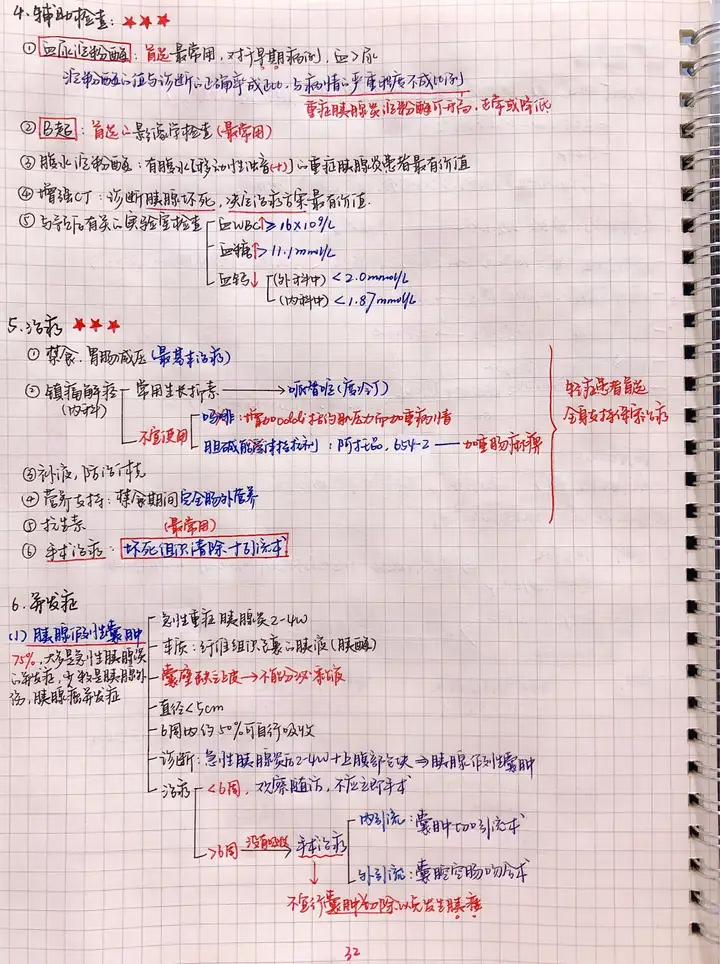 4.辅助检查:★★★
①血尿淀粉酶:首选最常用,对于早期病例,血>尿
淀粉酶的值与诊断的正确率成正比,与病情的严重程度不成比例
重症胰腺炎淀粉酶可不高,正常或降低
②B超:首选的影像学检查(最常用)
③腹水淀粉酶:有腹水[移动性浊音(+)]的重症胰腺炎患者最有价值
④增强CT:诊断胰腺坏死,决定治疗方案最有价值.
⑤与预后有关的实验室检查 血WBC↑≥16×10⁹/L
血糖↑>11.1mmol/L
血钙↓ (外科中)<2.0mmol/L
(内科中)<1.87mmol/L
5.治疗 ★★★
①禁食.胃肠减压(最基本治疗)
②镇痛解痉 常用生长抑素→哌替啶(度冷丁)
(内科) 不宜使用 吗啡:增加Oddi括约肌压力而加重病情
胆碱能受体拮抗剂:阿托品,654-2—加重肠麻痹
轻症患者首选
全身支持保守治疗
③补液,防治休克
④营养支持:禁食期间完全肠外营养
⑤抗生素 (最常用)
⑥手术治疗:坏死组织清除+引流术
6.并发症
(1)胰腺假性囊肿
75%,大多是急性胰腺炎
的并发症,少数是胰腺外
伤,胰腺癌并发症
急性重症胰腺炎2-4w
本质:纤维组织包裹的胰液(胰酶)
囊壁缺乏上皮→不能分泌黏液
直径<5cm
6周内约50%可自行吸收
诊断:急性胰腺炎后2-4w+上腹部包块⇒胰腺假性囊肿
治疗 <6周,观察随访,不应立即手术
>6周 没有吸收→手术治疗 内引流:囊肿切开引流术
外引流:囊腔空肠吻合术
不宜行囊肿切除以免发生胰瘘
32